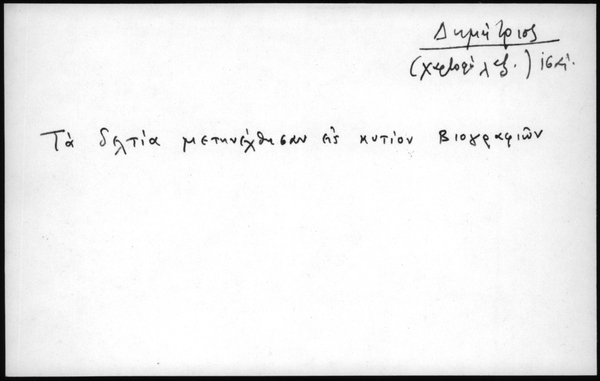 Δημήτριος
(χαρτοφύλαξ.)
Τὰ δελτία μετηνέχθησαν εἰς κυτίον Βιογραφιῶν